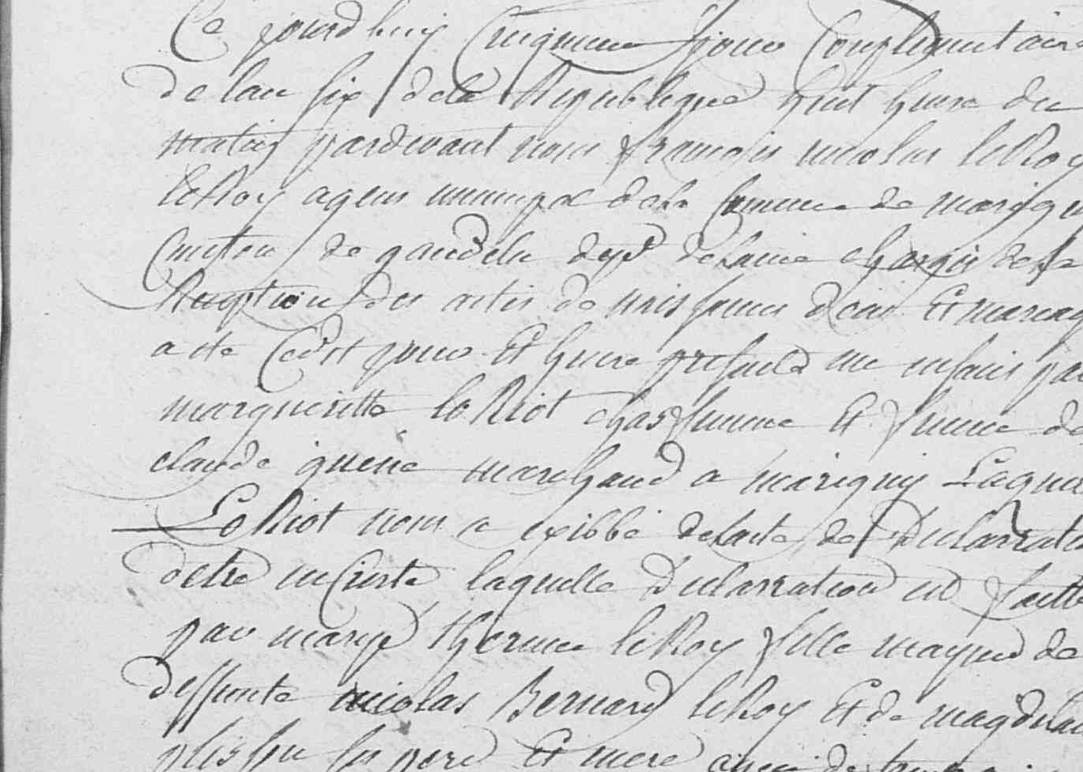 Ce jourd huy Cinquieme jour Conplementaire
de lan six de la Republique huit heure du
matin pardevant nous francois nicolas leRoy
leRoy agent municipal de la Commune de marigny
Canton de gandelu dept de laine chargée de la
Reception des actes de naissance deces Et mariag
a ete Cedit jour Et heure presenté un enfant par
margueritte loRiot chassfemme Et femme de
claude guerie marchand a marigny Laquel
LoRiot nous a exibbé delacte de Declarration
detre enCeinte laquelle Declarration est faitte
par marye therese leRoy fille mayeure de
deffunte nicolas Bernard leRoy Et de magdelai
plisson ses pere Et mere